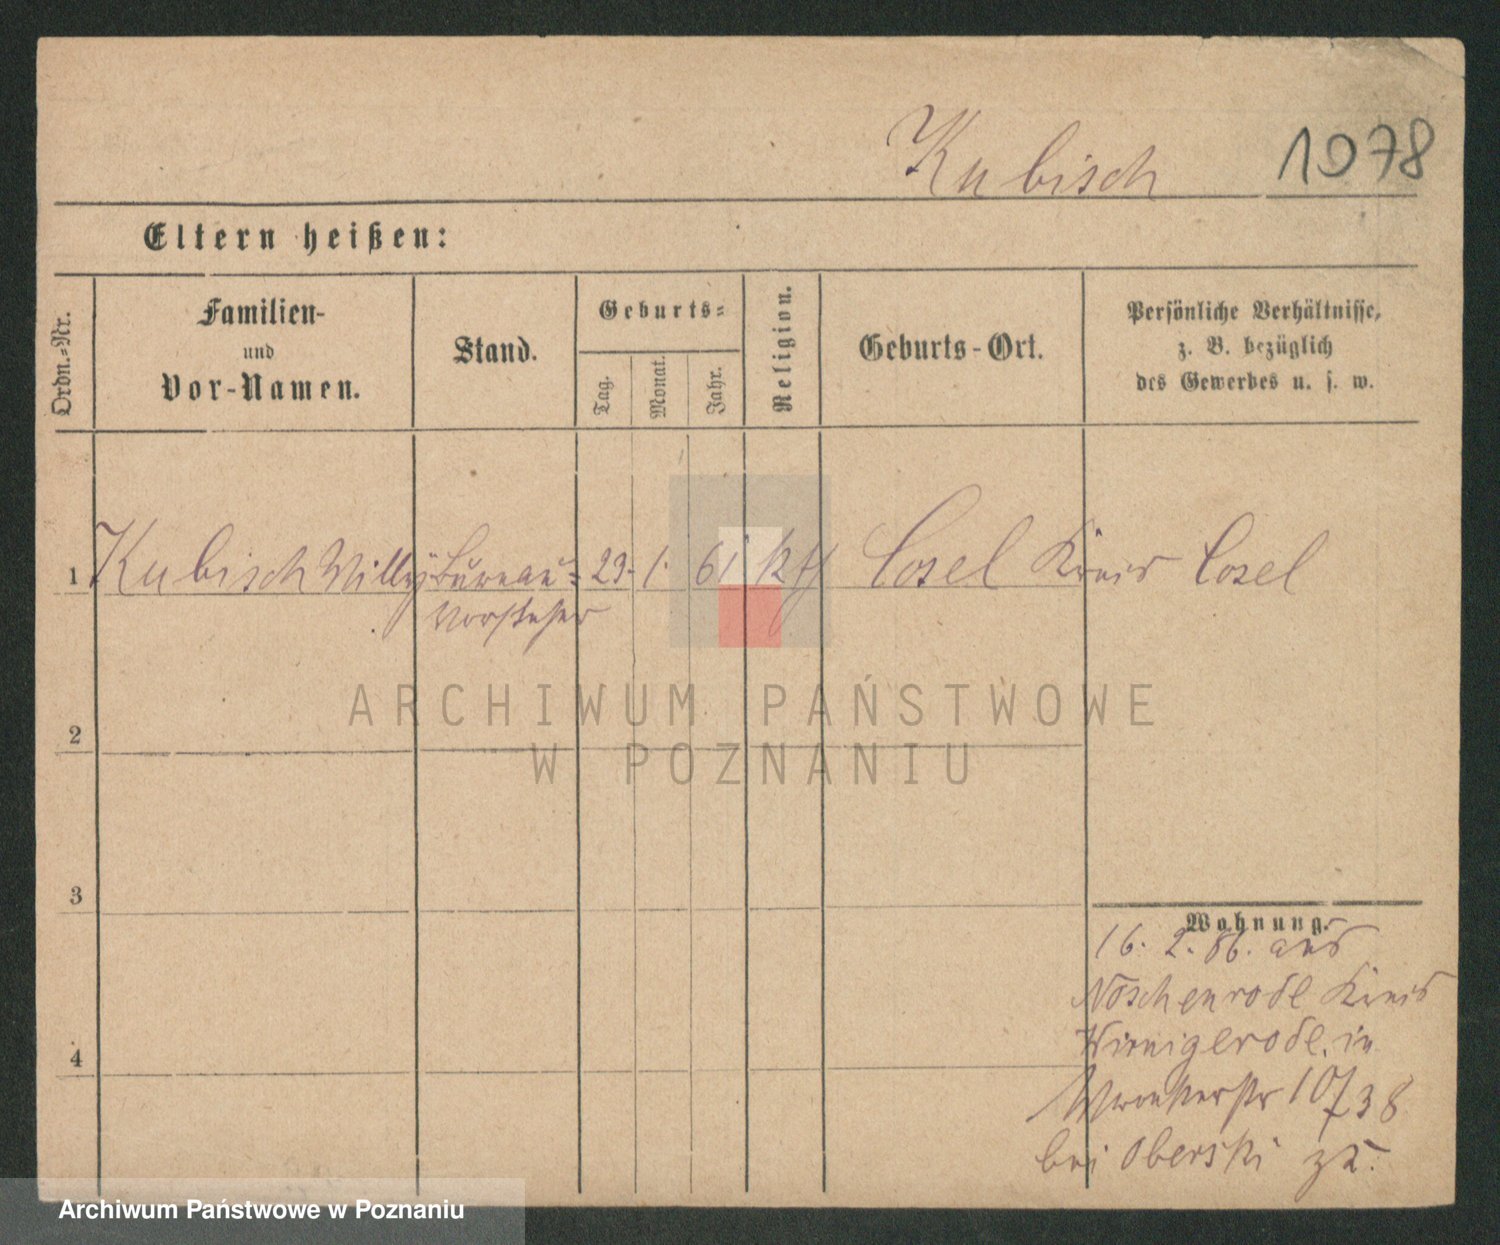 Kubisch 1078
Eltern heißen:
Ordn.-Nr.
Familien-
und
Vor-Namen.
Stand.
Geburts-
Tag.
Monat.
Jahr.
Religion.
Geburts-Ort.
Persönliche Verhältnisse,
z. B. bezüglich
des Gewerbes u. s. w.
1 Kubisch Willy Bureau- 29. 1. 61 kth Cosel Kreis Cosel
Vorsteher
2
3
4
Wohnung.
16. 2. 86. aus
Nöschenrode Kreis
Wernigerode in
Wronkerstr 10/38
bei Oberski
ARCHIWUM PAŃSTWOWE
W POZNANIU
Archiwum Państwowe w Poznaniu